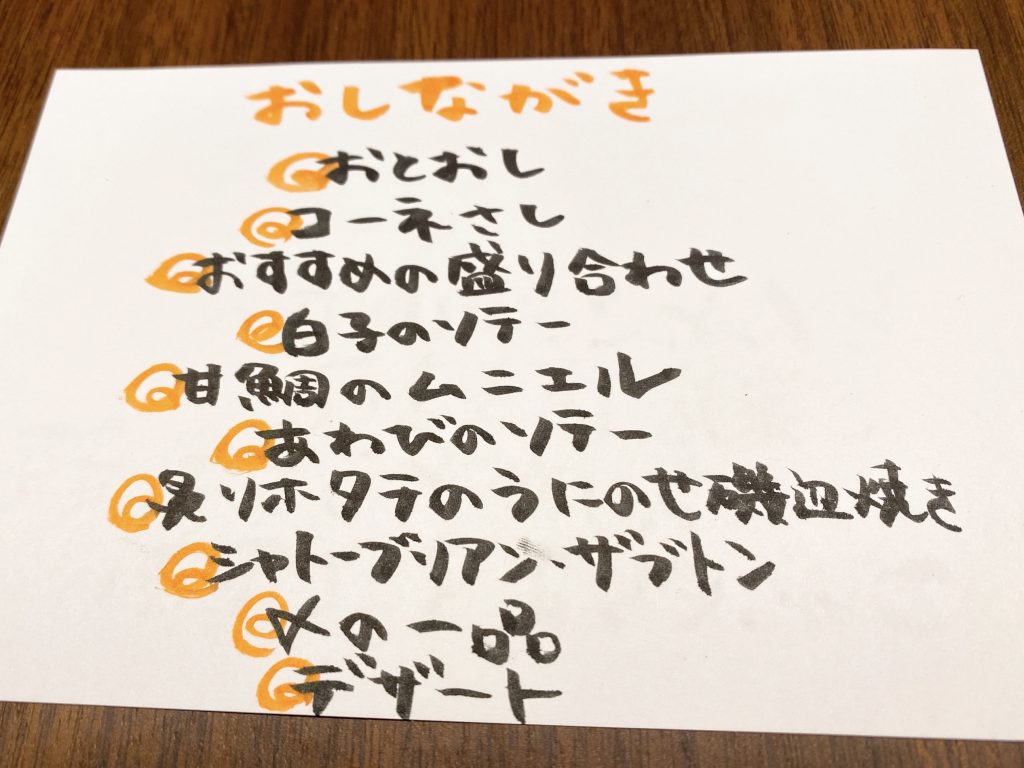 おしながき
おとおし
コーネさし
おすすめの盛り合わせ
白子のソテー
甘鯛のムニエル
あわびのソテー
炙りホタテのうにのせ磯辺焼き
シャトーブリアン・ザブトン
〆の一品
デザート